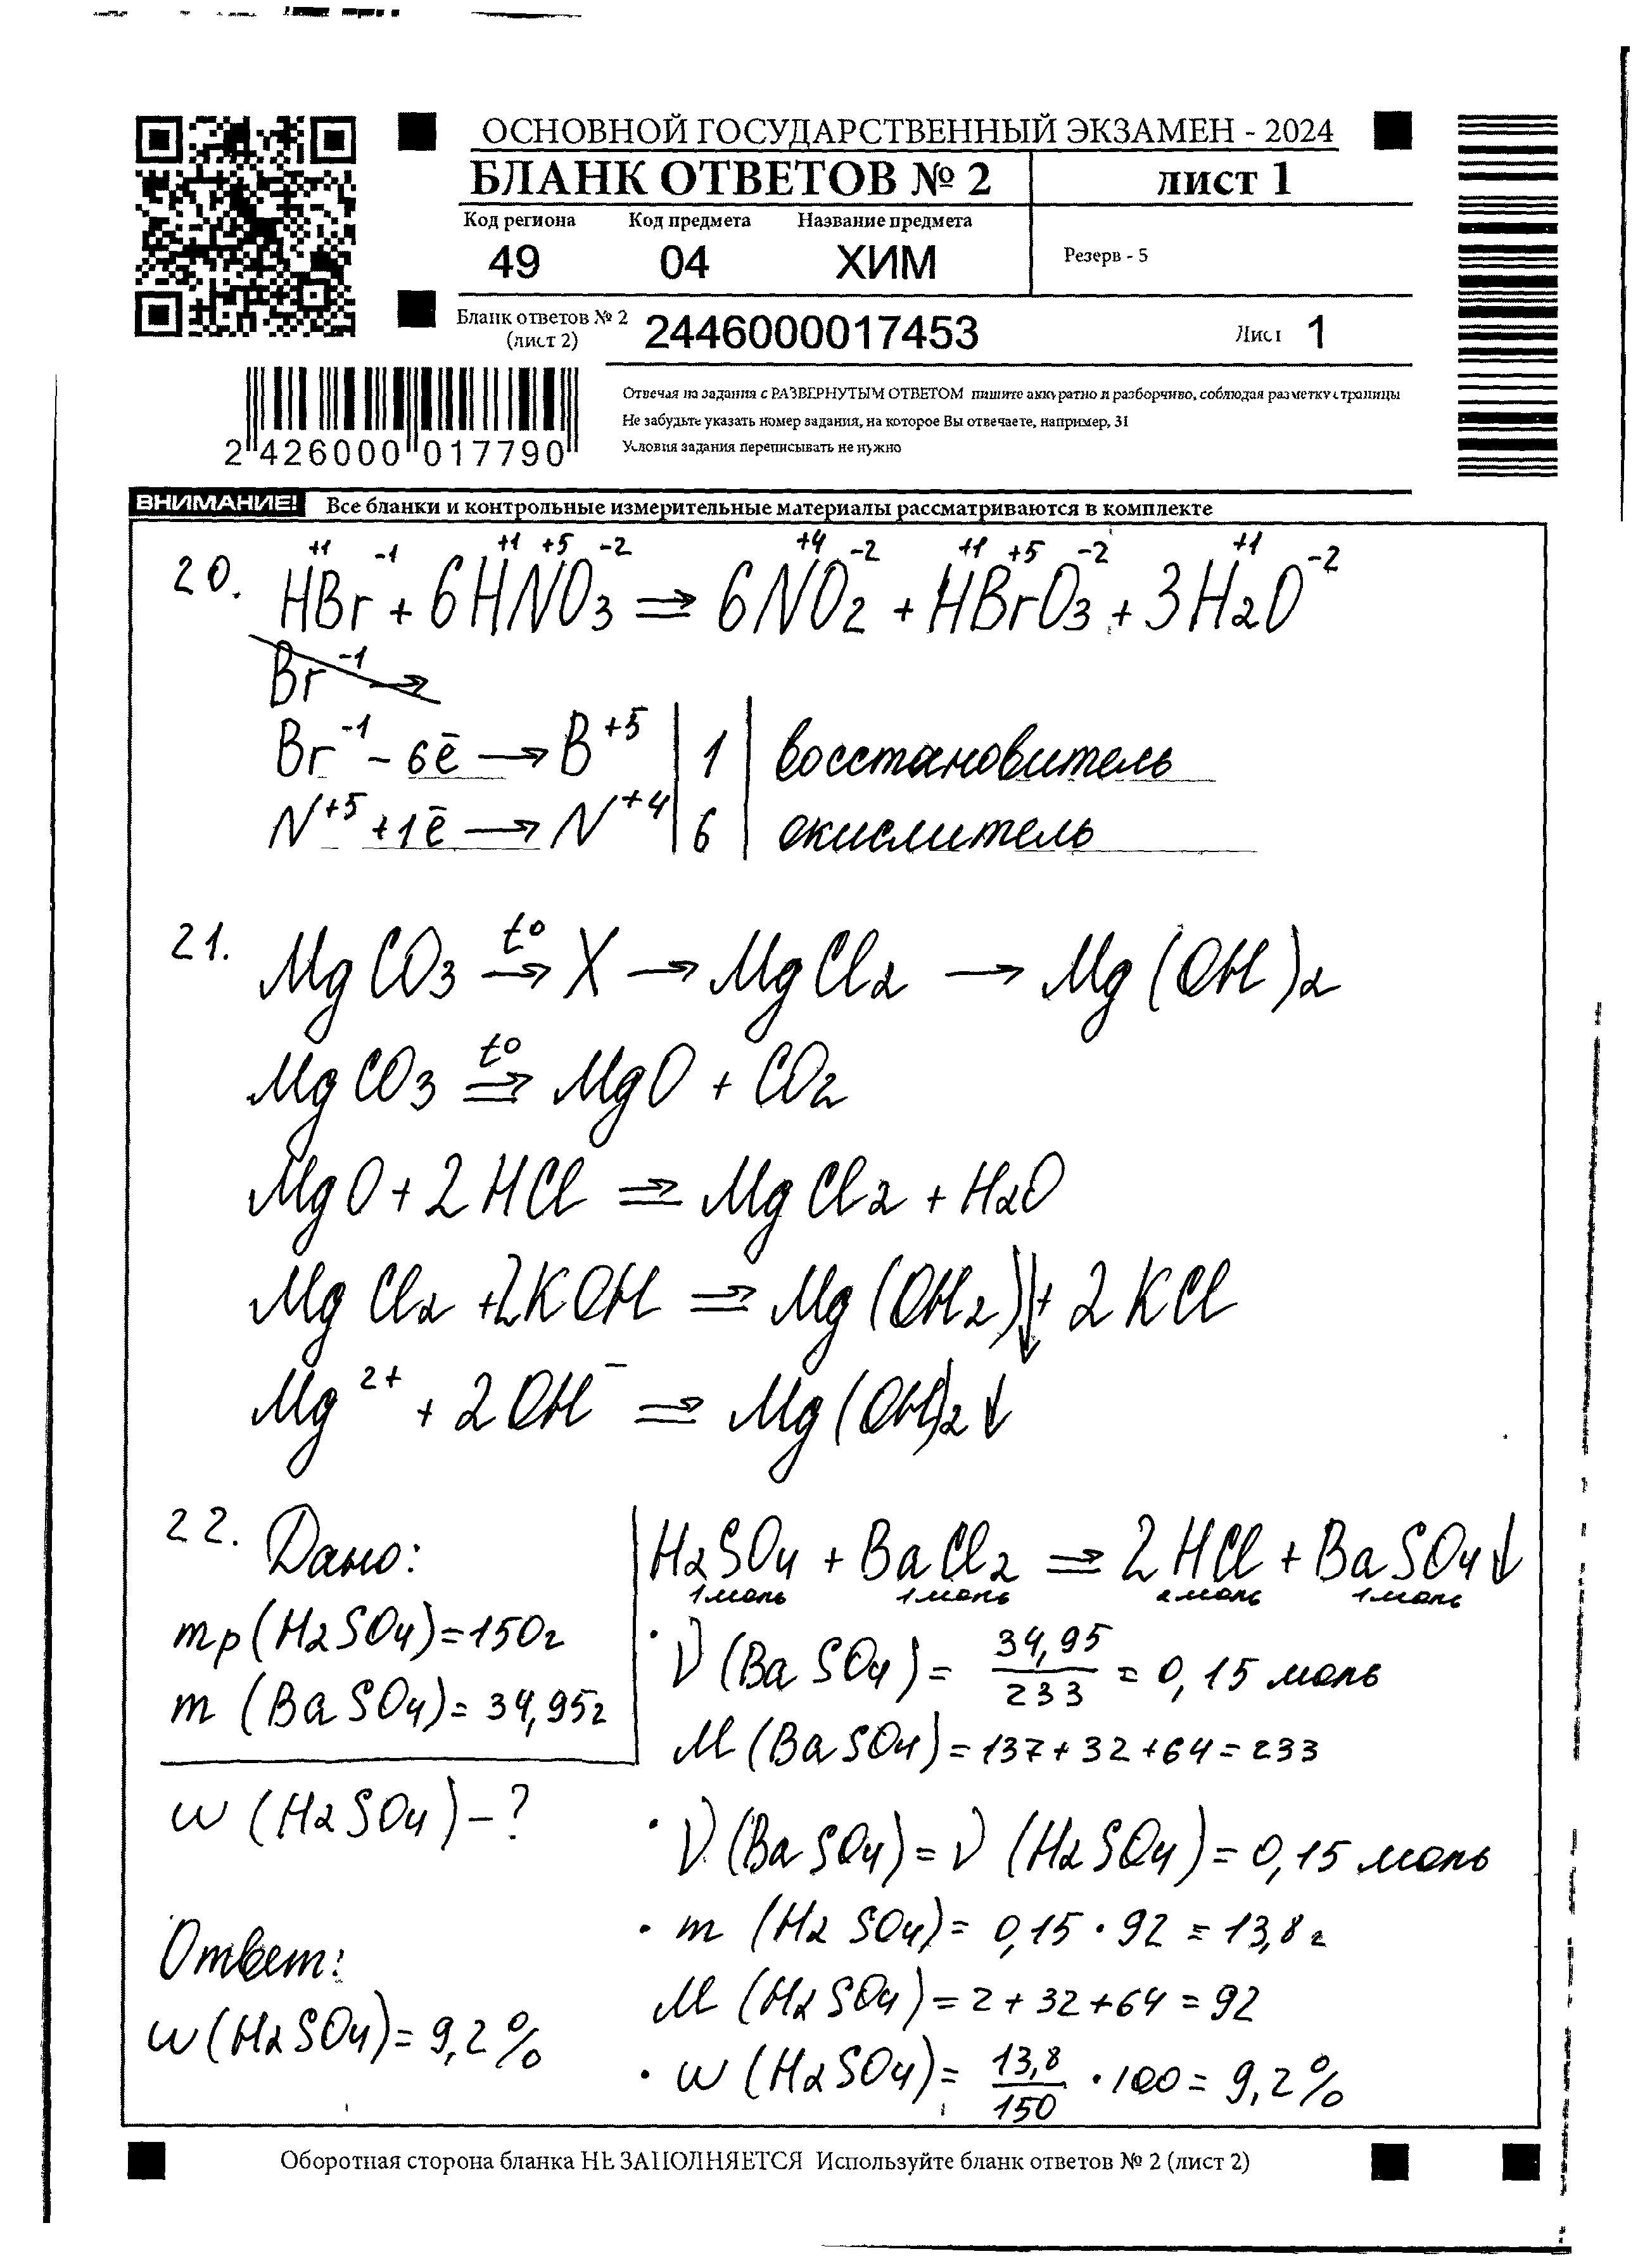 ОСНОВНОЙ ГОСУДАРСТВЕННЫЙ ЭКЗАМЕН - 2024
БЛАНК ОТВЕТОВ № 2 лист 1
Код региона Код предмета Название предмета
49 04 ХИМ Резерв - 5
Бланк ответов № 2 (лист 2) 2446000017453 Лист 1
2 426000 017790
Отвечая на задания с РАЗВЕРНУТЫМ ОТВЕТОМ пишите аккуратно и разборчиво, соблюдая разметку страницы
Не забудьте указать номер задания, на которое Вы отвечаете, например, 31
Условия задания переписывать не нужно
ВНИМАНИЕ! Все бланки и контрольные измерительные материалы рассматриваются в комплекте
+1 -1 +1 +5 -2 +4 -2 +1 +5 -2 +1 -2
20. HBr + 6HNO3 => 6NO2 + HBrO3 + 3H2O
Br⁻¹ →
Br⁻¹ - 6ē → B⁺⁵ | 1 | восстановитель
N⁺⁵ + 1ē → N⁺⁴ | 6 | окислитель
21. MgCO3 t° → X → MgCl2 → Mg(OH)2
MgCO3 t° => MgO + CO2
MgO + 2HCl => MgCl2 + H2O
MgCl2 + 2KOH => Mg(OH2)↓ + 2KCl
Mg²⁺ + 2OH⁻ => Mg(OH)2↓
22. Дано:
mр(H2SO4) = 150г
m (BaSO4) = 34,95г
w (H2SO4) - ?
Ответ:
w (H2SO4) = 9,2%
H2SO4 + BaCl2 => 2HCl + BaSO4↓
1моль 1моль 2моль 1моль
· ν (BaSO4) = 34,95/233 = 0,15 моль
M (BaSO4) = 137 + 32 + 64 = 233
· ν (BaSO4) = ν (H2SO4) = 0,15 моль
· m (H2SO4) = 0,15 · 92 = 13,8 г
M (H2SO4) = 2 + 32 + 64 = 92
· w (H2SO4) = 13,8/150 · 100 = 9,2%
Оборотная сторона бланка НЕ ЗАПОЛНЯЕТСЯ Используйте бланк ответов № 2 (лист 2)